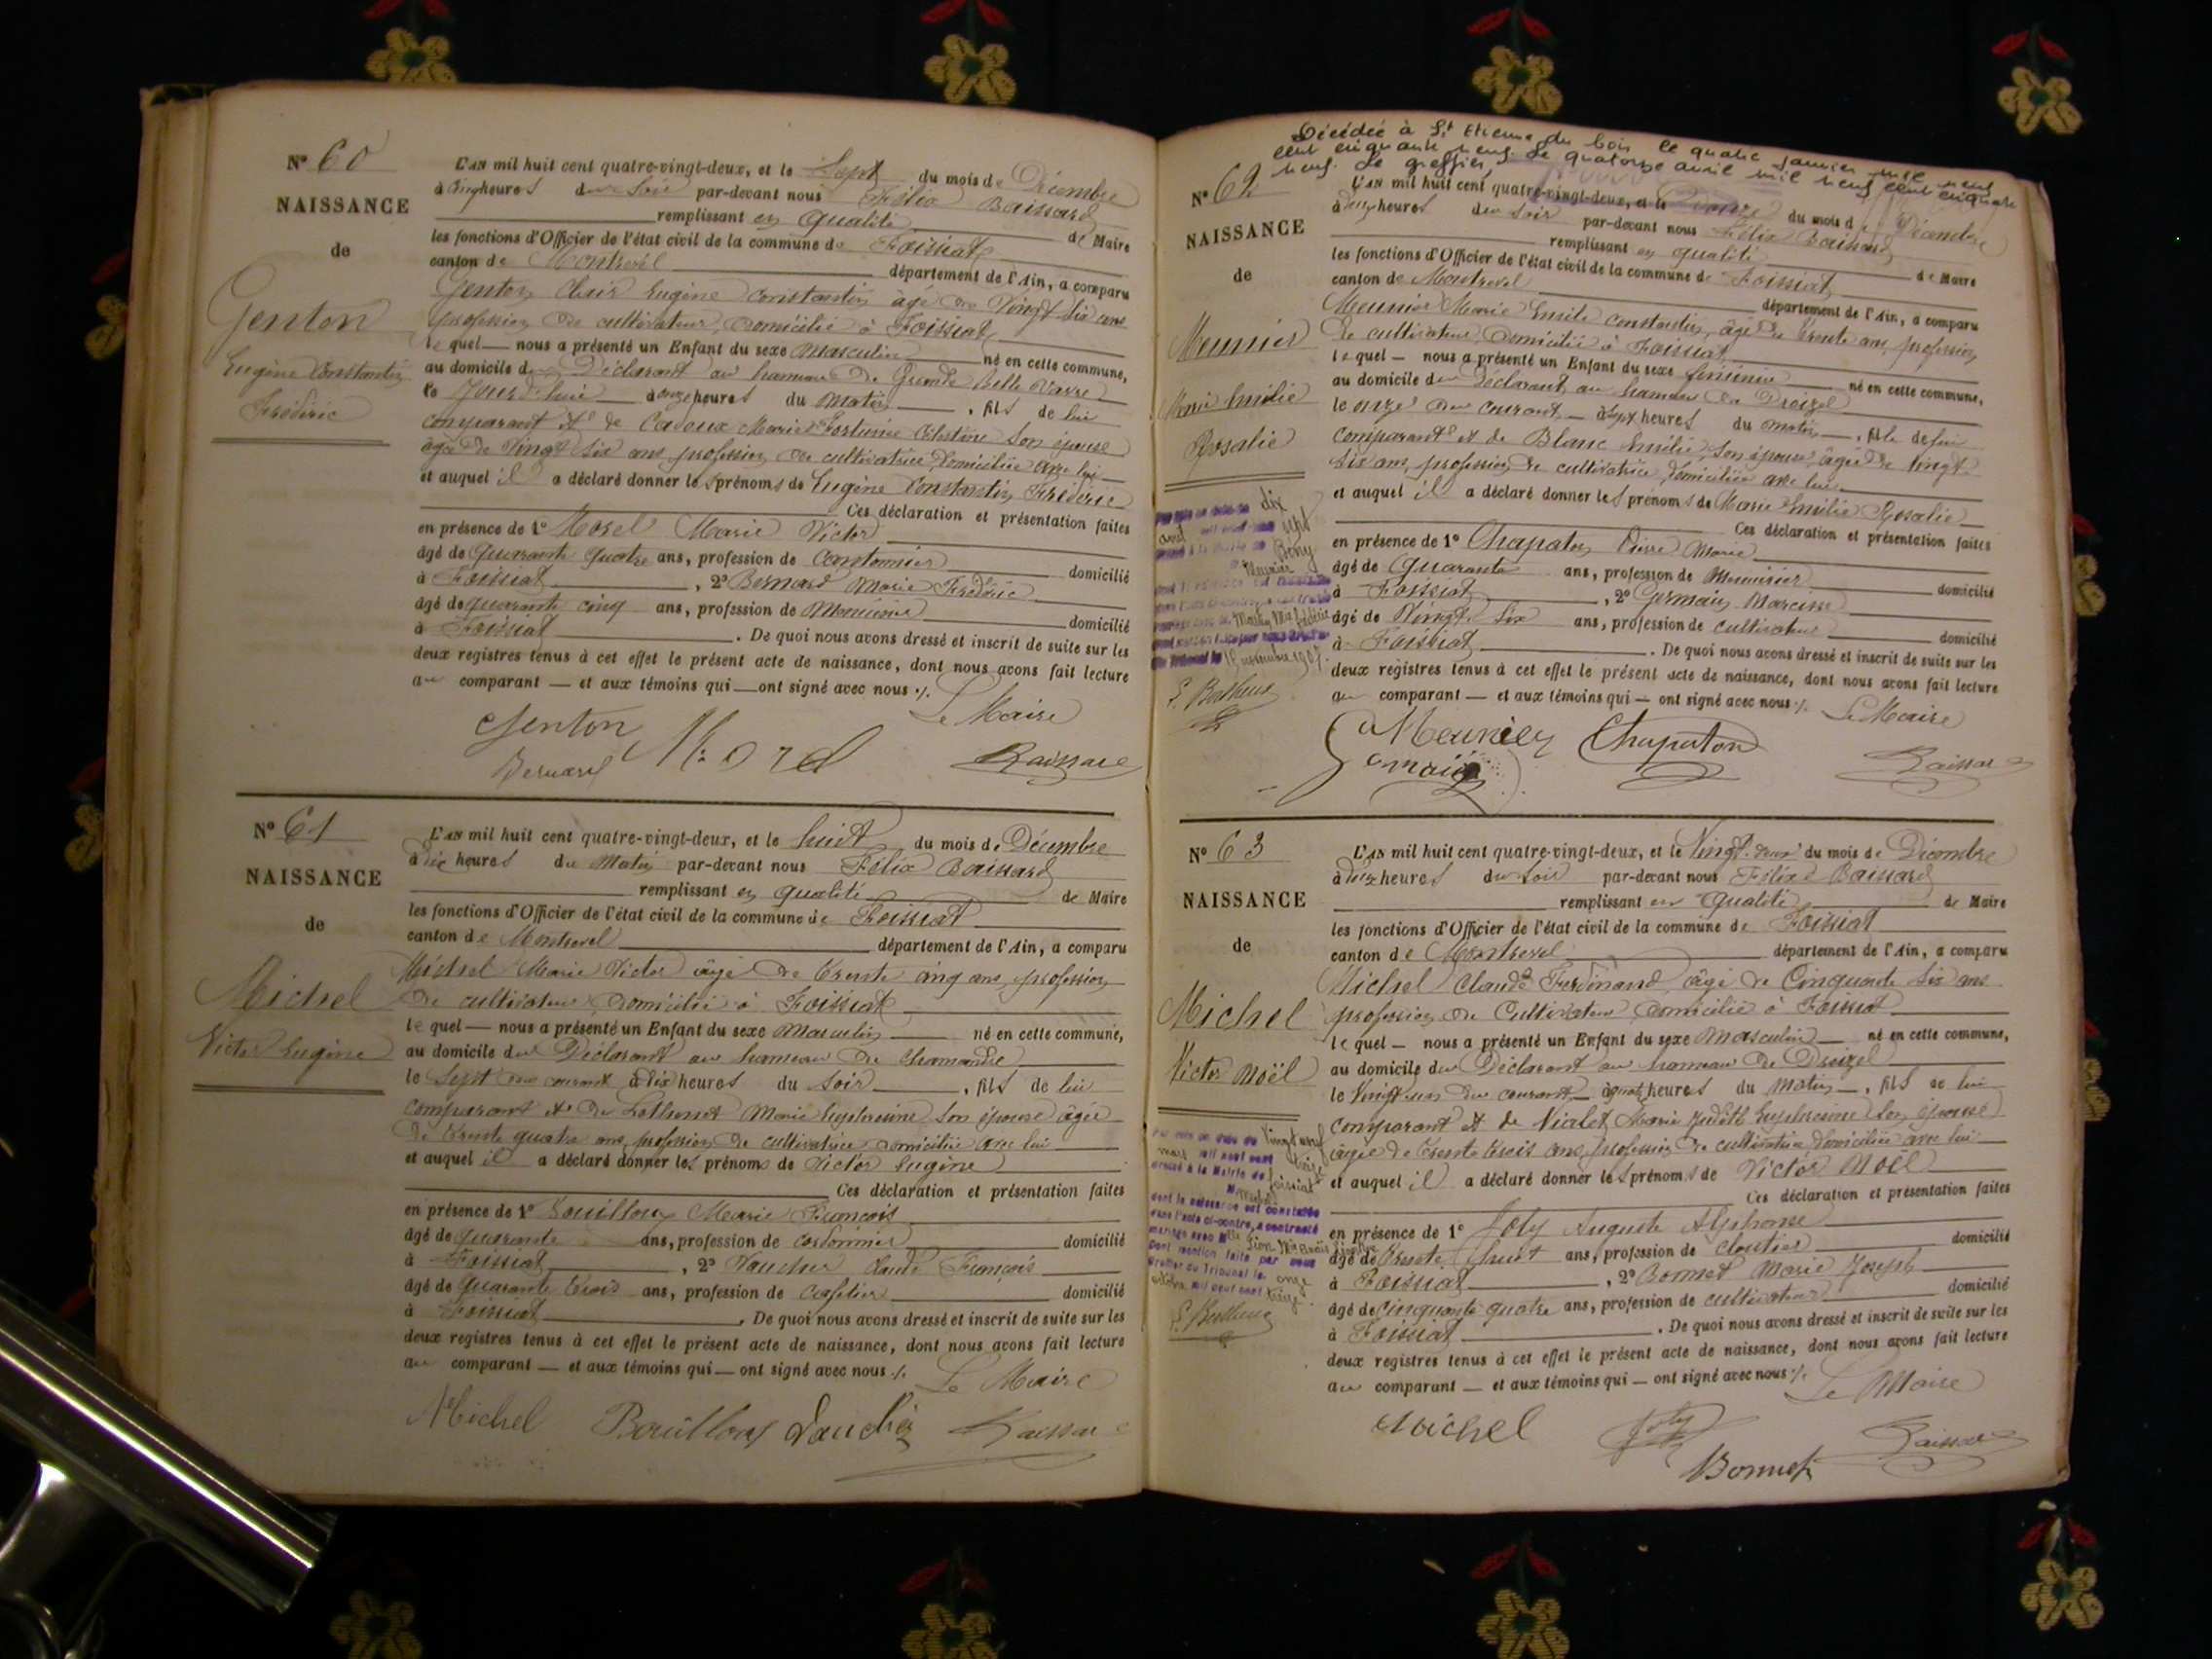 Nº 60
NAISSANCE
de
Genton
Eugène Constantin
Frédéric
L'AN mil huit cent quatre-vingt-deux, et le Sept du mois de Décembre
à cinq heures du Soir par-devant nous Félix Baissard
remplissant en qualité de Maire
les fonctions d'Officier de l'état civil de la commune de Foissiat
canton de Montrevel département de l'Ain, a comparu
Genton Clair Eugène Constantin âgé de Vingt Six ans
profession de cultivateur, domicilié à Foissiat
lequel — nous a présenté un Enfant du sexe Masculin né en cette commune,
au domicile du Déclarant au hameau de Grande Velle
le Jourd'hui à onze heures du Matin, fils de lui
comparant et de Marie Fortunie Célestine Son épouse
âgée de Vingt Six ans, profession de cultivatrice, domiciliée avec lui
et auquel il a déclaré donner les prénoms de Eugène Constantin Frédéric
Ces déclaration et présentation faites
en présence de 1º Morel Marie Victor
âgé de Quarante quatre ans, profession de domicilié
à Foissiat, 2º Bernard Marie Frédéric
âgé de quarante cinq ans, profession de Menuisier domicilié
à Foissiat. De quoi nous avons dressé et inscrit de suite sur les
deux registres tenus à cet effet le présent acte de naissance, dont nous avons fait lecture
au comparant — et aux témoins qui — ont signé avec nous ./.
Le Maire
Genton Morel
Bernard Baissard
Nº 61
NAISSANCE
de
Michel
Victor Eugène
L'AN mil huit cent quatre-vingt-deux, et le huit du mois de Décembre
à dix heures du Matin par-devant nous Félix Baissard
remplissant en qualité de Maire
les fonctions d'Officier de l'état civil de la commune de Foissiat
canton de Montrevel département de l'Ain, a comparu
Michel Marie Victor âgé de Trente cinq ans, profession
de cultivateur, domicilié à Foissiat
lequel — nous a présenté un Enfant du sexe Masculin né en cette commune,
au domicile du Déclarant au hameau de Chamandre
le Sept du courant à dix heures du Soir, fils de lui
comparant et de Marie Euphrosine Son épouse âgée
de Trente quatre ans, profession de cultivatrice domiciliée avec lui
et auquel il a déclaré donner les prénoms de Victor Eugène
Ces déclaration et présentation faites
en présence de 1º Bouilloux Marie François
âgé de Quarante ans, profession de cordonnier domicilié
à Foissiat, 2º Claude François
âgé de Quarante Trois ans, profession de Cafetier domicilié
à Foissiat. De quoi nous avons dressé et inscrit de suite sur les
deux registres tenus à cet effet le présent acte de naissance, dont nous avons fait lecture
au comparant — et aux témoins qui — ont signé avec nous ./.
Le Maire
Michel Bouilloux Baissard
Décédée à St Etienne du bois le quatre janvier mil neuf
cent cinquante neuf. Le quatorze avril mil neuf cent cinquante
neuf. Le greffier,
Nº 62
NAISSANCE
de
Meunier
Marie Emilie
Rosalie
L'AN mil huit cent quatre-vingt-deux, et le du mois de Décembre
à heures du Soir par-devant nous Félix Baissard
remplissant en qualité de Maire
les fonctions d'Officier de l'état civil de la commune de Foissiat
canton de Montrevel département de l'Ain, a comparu
Meunier Marie Emile Constantin, âgé de Trente ans, profession
de cultivateur, domicilié à Foissiat
lequel — nous a présenté un Enfant du sexe féminin né en cette commune,
au domicile du Déclarant au hameau de Dreizel
le onze du courant — à Sept heures du matin —, fille de lui
comparant et de Blanc Emilie, Son épouse, âgée de Vingt
Six ans, profession de cultivatrice, domiciliée avec lui
et auquel il a déclaré donner les prénoms de Marie Emilie Rosalie
Ces déclaration et présentation faites
en présence de 1º Chapaton Pierre Marie
âgé de Quarante ans, profession de Menuisier domicilié
à Foissiat, 2º Germain Narcisse
âgé de Vingt Six ans, profession de cultivateur domicilié
à Foissiat. De quoi nous avons dressé et inscrit de suite sur les
deux registres tenus à cet effet le présent acte de naissance, dont nous avons fait lecture
au comparant — et aux témoins qui — ont signé avec nous ./.
Le Maire
dix
août sept
Bény
Meunier
18 novembre 1907.
Meunier Chapaton
Germain Baissard
Nº 63
NAISSANCE
de
Michel
Victor Noël
L'AN mil huit cent quatre-vingt-deux, et le Vingt-deux du mois de Décembre
à heures du Soir par-devant nous Félix Baissard
remplissant en qualité de Maire
les fonctions d'Officier de l'état civil de la commune de Foissiat
canton de Montrevel département de l'Ain, a comparu
Michel Claude Ferdinand, âgé de Cinquante Six ans
profession de Cultivateur, domicilié à Foissiat
lequel — nous a présenté un Enfant du sexe Masculin — né en cette commune,
au domicile du Déclarant au hameau de Dreizel
le Vingt un du courant — à quatre heures du Matin —, fils de lui
comparant et de Vialet Marie Judith Euphrosine Son épouse
âgée de Trente Trois ans, profession de cultivatrice, domiciliée avec lui
et auquel il a déclaré donner les prénoms de Victor Noël
Ces déclaration et présentation faites
en présence de 1º Joly Auguste Alphonse
âgé de Trente huit ans, profession de cloutier domicilié
à Foissiat, 2º Bonnet Marie Joseph
âgé de Cinquante quatre ans, profession de cultivateur domicilié
à Foissiat. De quoi nous avons dressé et inscrit de suite sur les
deux registres tenus à cet effet le présent acte de naissance, dont nous avons fait lecture
au comparant — et aux témoins qui — ont signé avec nous ./.
Le Maire
vingt neuf
mil neuf cent
dressé à la Mairie de Foissiat
Michel
dont la naissance est constatée
dans l'acte ci-contre, a contracté
mariage avec
Dont mention faite par nous
Greffier du Tribunal le onze
octobre mil neuf cent
Michel Joly
Bonnet Baissard